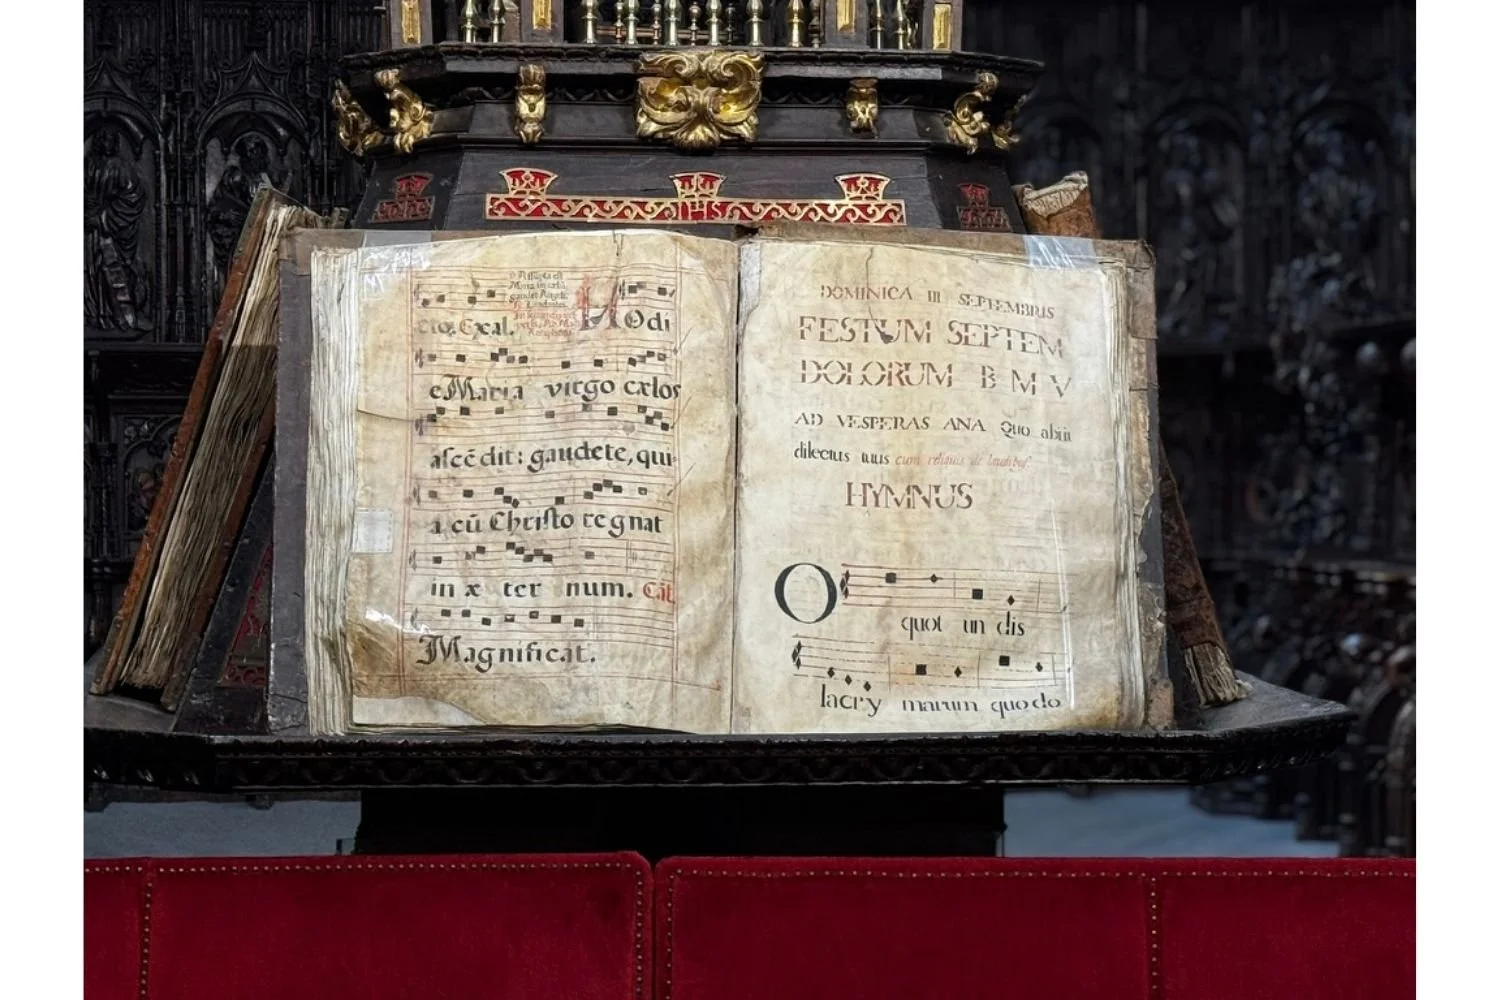 IHS
℣ Assūpta est
Maria in cælū,
gaudet Angeli.
cto. Exal. HOdi
e Maria virgo cælos
ascēdit: gaudete, qui-
a cū Christo regnat
in æ ter num. Cāt.
Magnificat.
DOMINICA III SEPTEMBRIS
FESTUM SEPTEM
DOLORUM B M V
AD VESPERAS ANA Quo abiit
dilectus tuus cum reliquis de laudibus.
HYMNUS
O
quot un dis
lacry marum quo do